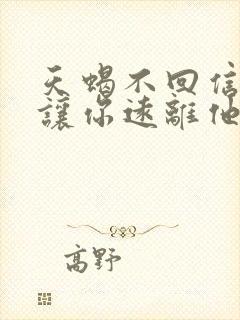 天蝎不回信
讓你遠離他
高野